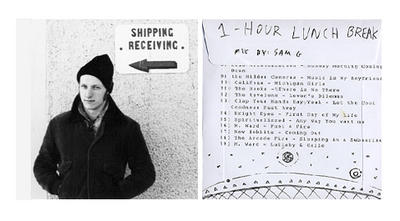 SHIPPING
. RECEIVING.
1-HOUR LUNCH BREAK
MIX BY: SAM G
Morning Coming
Down
9) the Hidden Cameras - Music Is My Boyfriend
- Michigan Girls
The Books - There Is No There
12) The Avalons - Lover's Dilemma
13) Clap Your Hands Say Yeah - Let the Cool
Goddess Rust Away
14) Bright Eyes - First Day of My Life
15) Spiritualized - Any Way You Want me
16) M. Ward - Fuel 4 Fire
17) New Buffalo - Coming Out
18) The Arcade Fire - Sleeping in a Submarine
19) M. Ward - Lullaby & Exile